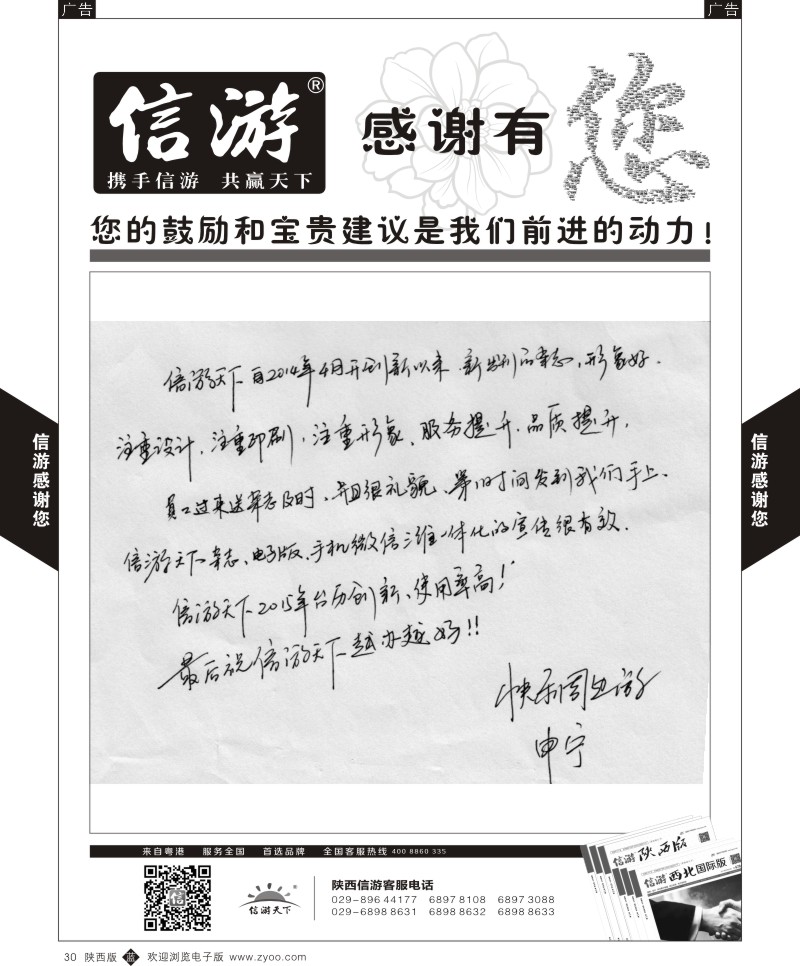 广告
广告
信游®
携手信游 共赢天下
感谢有您
您的鼓励和宝贵建议是我们前进的动力!
信游感谢您
信游感谢您
信游天下自2014年4月开创新以来.新出刊的杂志,形象好.
注重设计,注重印刷,注重形象、服务提升.品质提升,
员工过来送杂志及时、并且很礼貌、第一时间发到我们手上、
信游天下杂志、电子版、手机微信三维一体化的宣传很有效.
信游天下2015年台历创新、使用率高!
最后祝信游天下越办越好!!
快乐周边游
申宁
来自粤港 服务全国 首选品牌 全国客服热线 400 8860 335
信游
信游天下®
陕西信游客服电话
029-896 44177 6897 8108 6897 3088
029-6898 8631 6898 8632 6898 8633
信游 陕西版
信游 西北国际版
30 陕西版 蓝 欢迎浏览电子版 www.zyoo.com